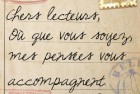 Chers lecteurs,
Où que vous soyez,
mes pensées vous
accompagnent